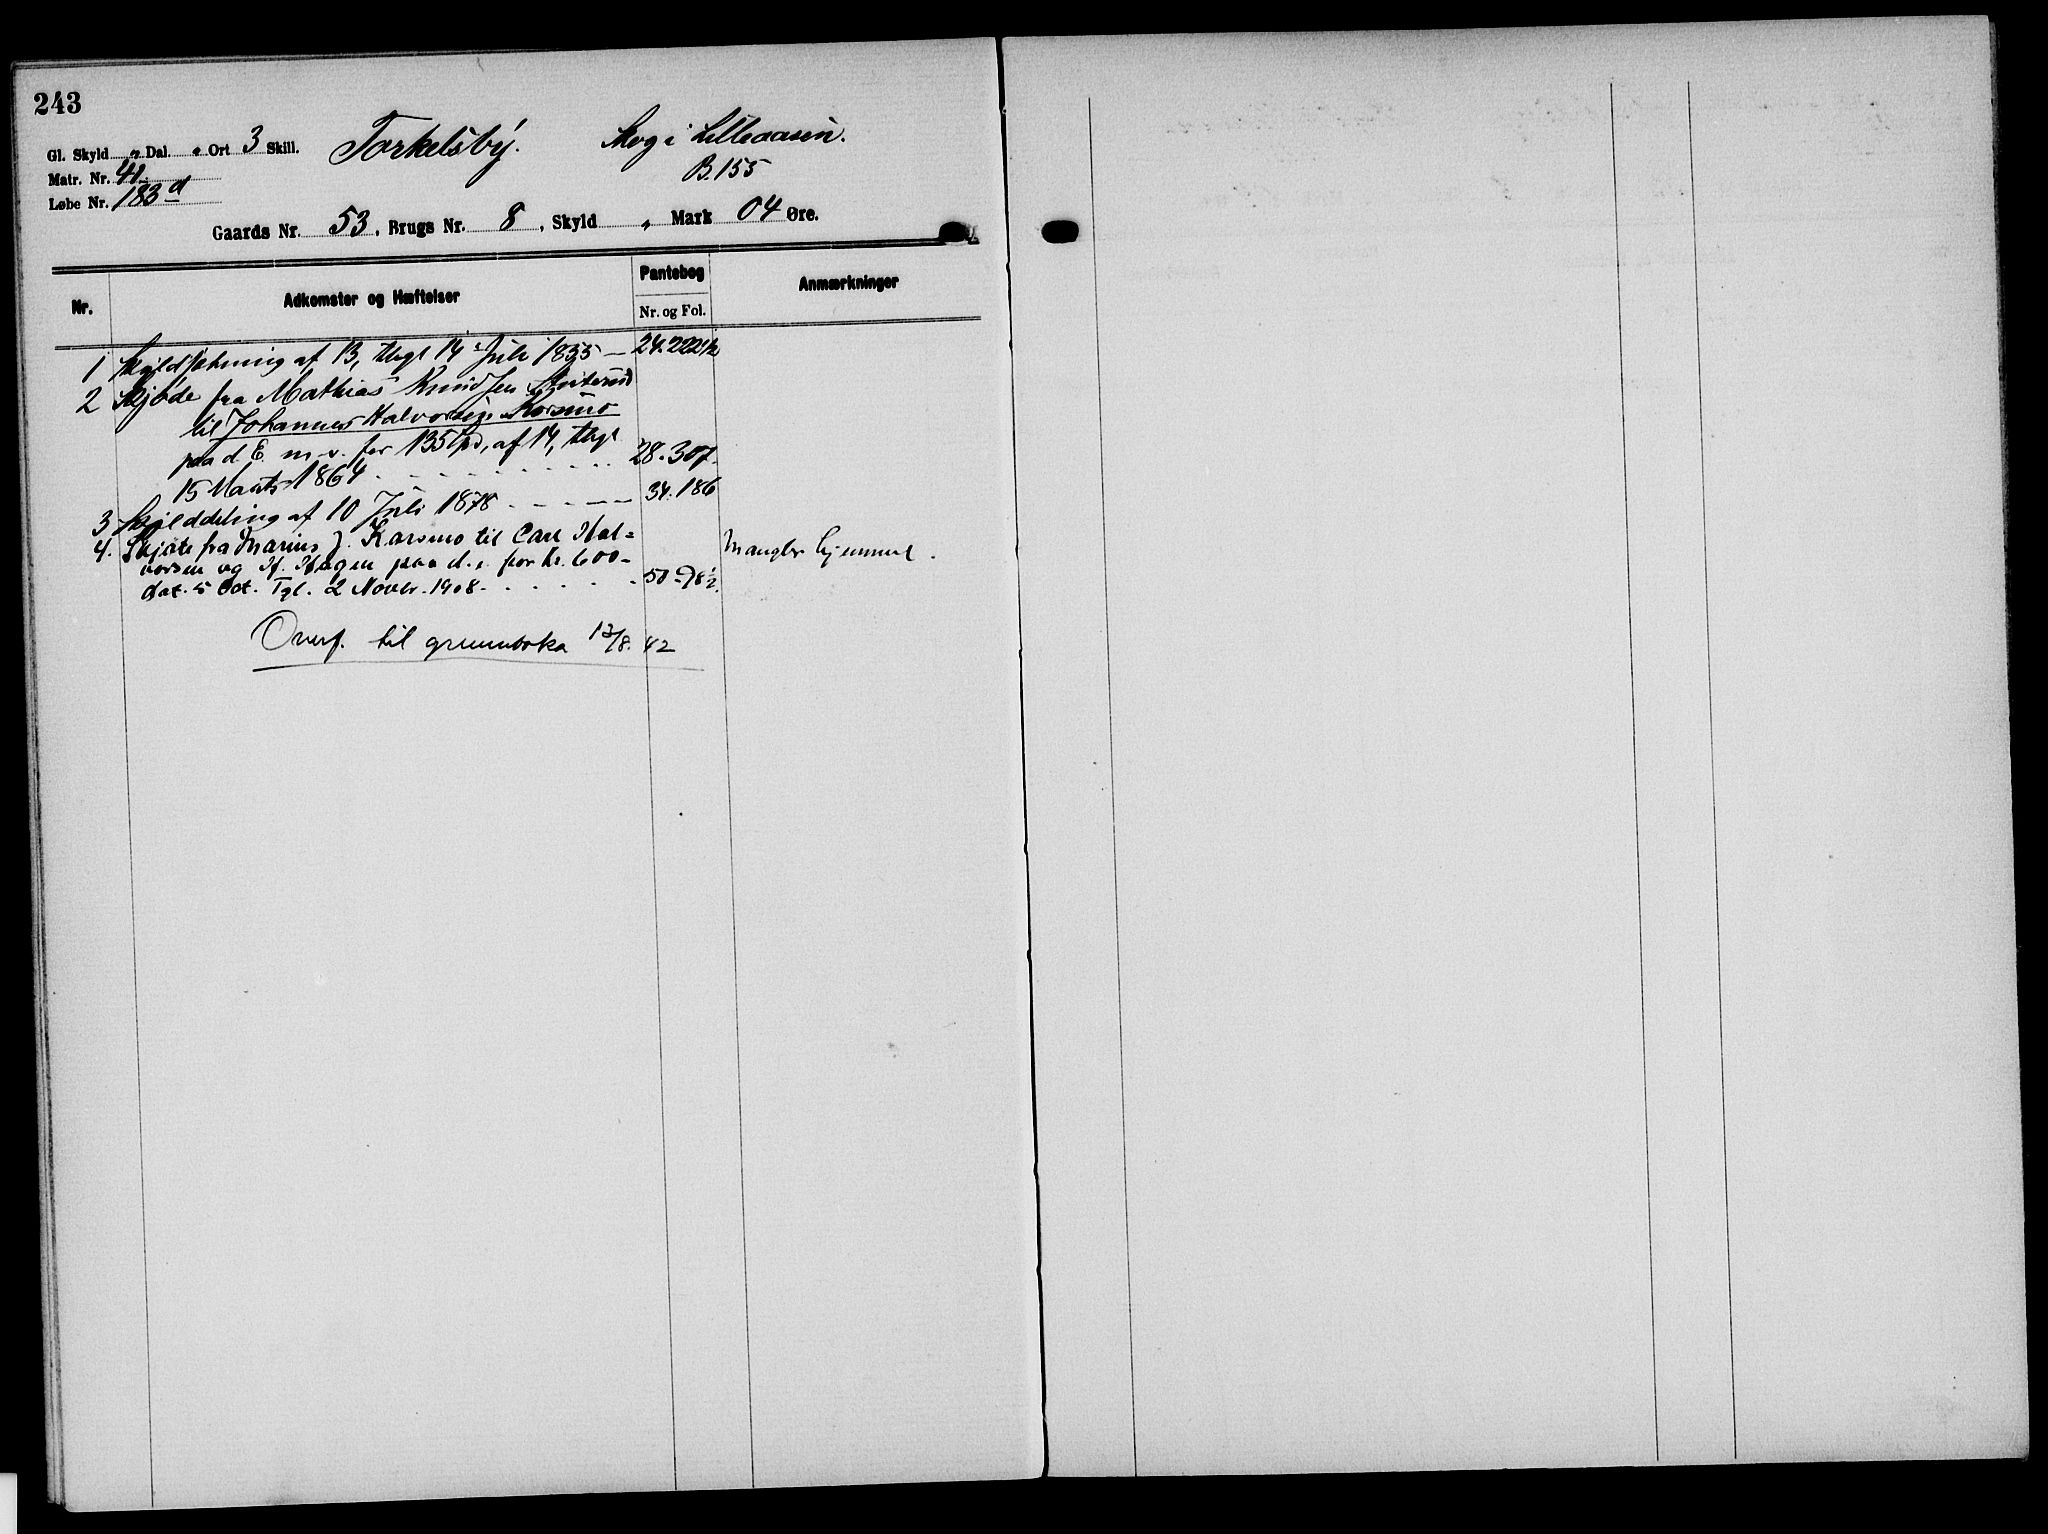 243
Gl. Skyld „ Dal. „ Ort 3 Skill. Torkelsby. Skog i Lilleaasen.
Matr. Nr. 41. B. 155
Løbe Nr. 183 d
Gaards Nr. 53, Brugs Nr. 8, Skyld „ Mark 04 Øre.
Nr. Adkomster og Hæftelser Pantebog Anmærkninger
Nr. og Fol.
1 Skyldsætning af 13, thgl 14 Juli 1855 — 24.222½
2 Skjøde fra Mathias Knudsen
til Johannes Halvorsen Korsmo
paa d. E. m. v. for 135 Spd, af 14, thgl
15 Marts 1864 - - - - - - 28.307.
3 Skylddeling af 10 Juli 1878 - - - - 34.186
4. Skjøte fra Marius J. Korsmo til Carl Hal=
vorsen og H. Hagen paa d. e. for kr. 600- Mangler hjemmel.
dat. 5 Oct. Tgl. 2 Novbr. 1908 - - - - - 50-98½.
Overf. til grunnboka 12/8. 42